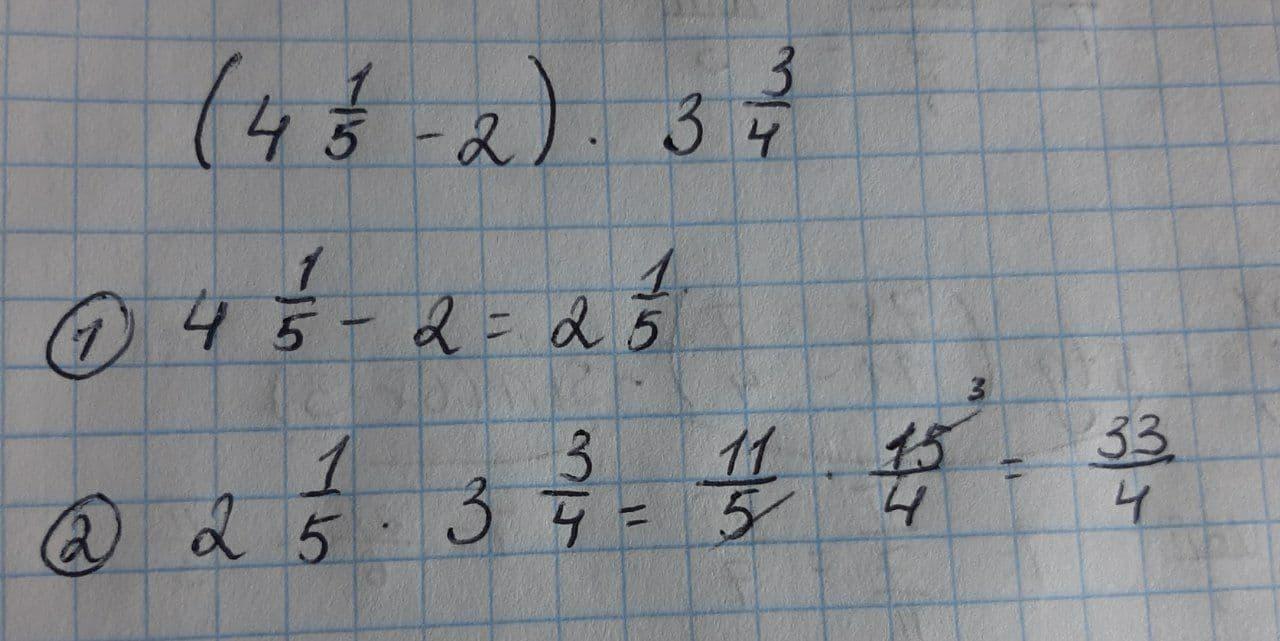 (4 1/5 - 2) · 3 3/4
① 4 1/5 - 2 = 2 1/5
② 2 1/5 · 3 3/4 = 11/5 · 15/4 3 = 33/4